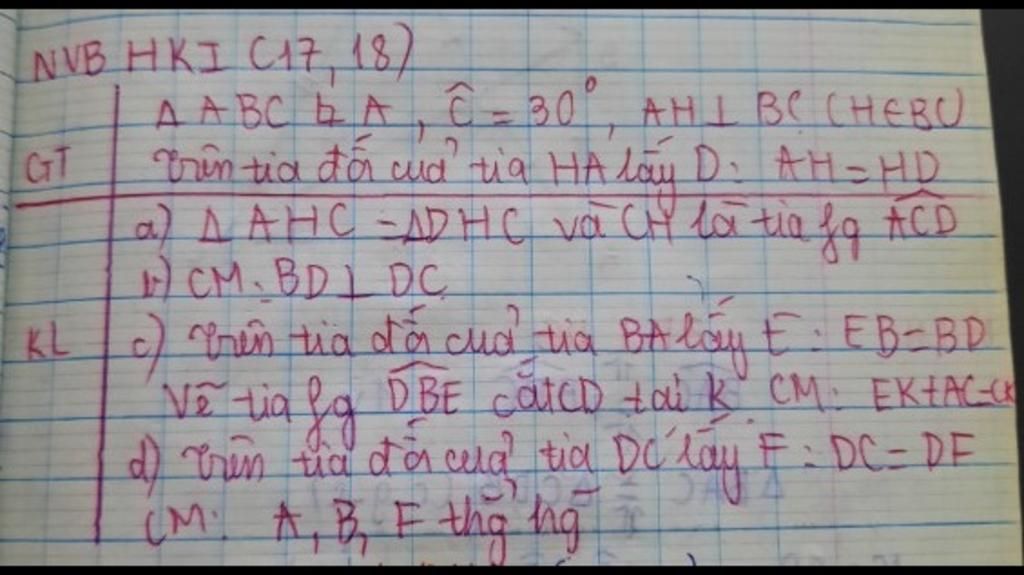 NVB HKI (17, 18)
Δ ABC ⊾ A, Ĉ = 30°, AH ⊥ BC (H∈BC)
GT trên tia đối của tia HA lấy D: AH = HD
a) Δ AHC = ΔDHC và CH là tia fg ACD
b) CM: BD ⊥ DC
KL c) trên tia đối của tia BA lấy E: EB = BD
Vẽ tia fg DBE cắt CD tại K CM: EK+AC=CK
d) trên tia đối của tia DC lấy F: DC = DF
CM: A, B, F thẳng hg